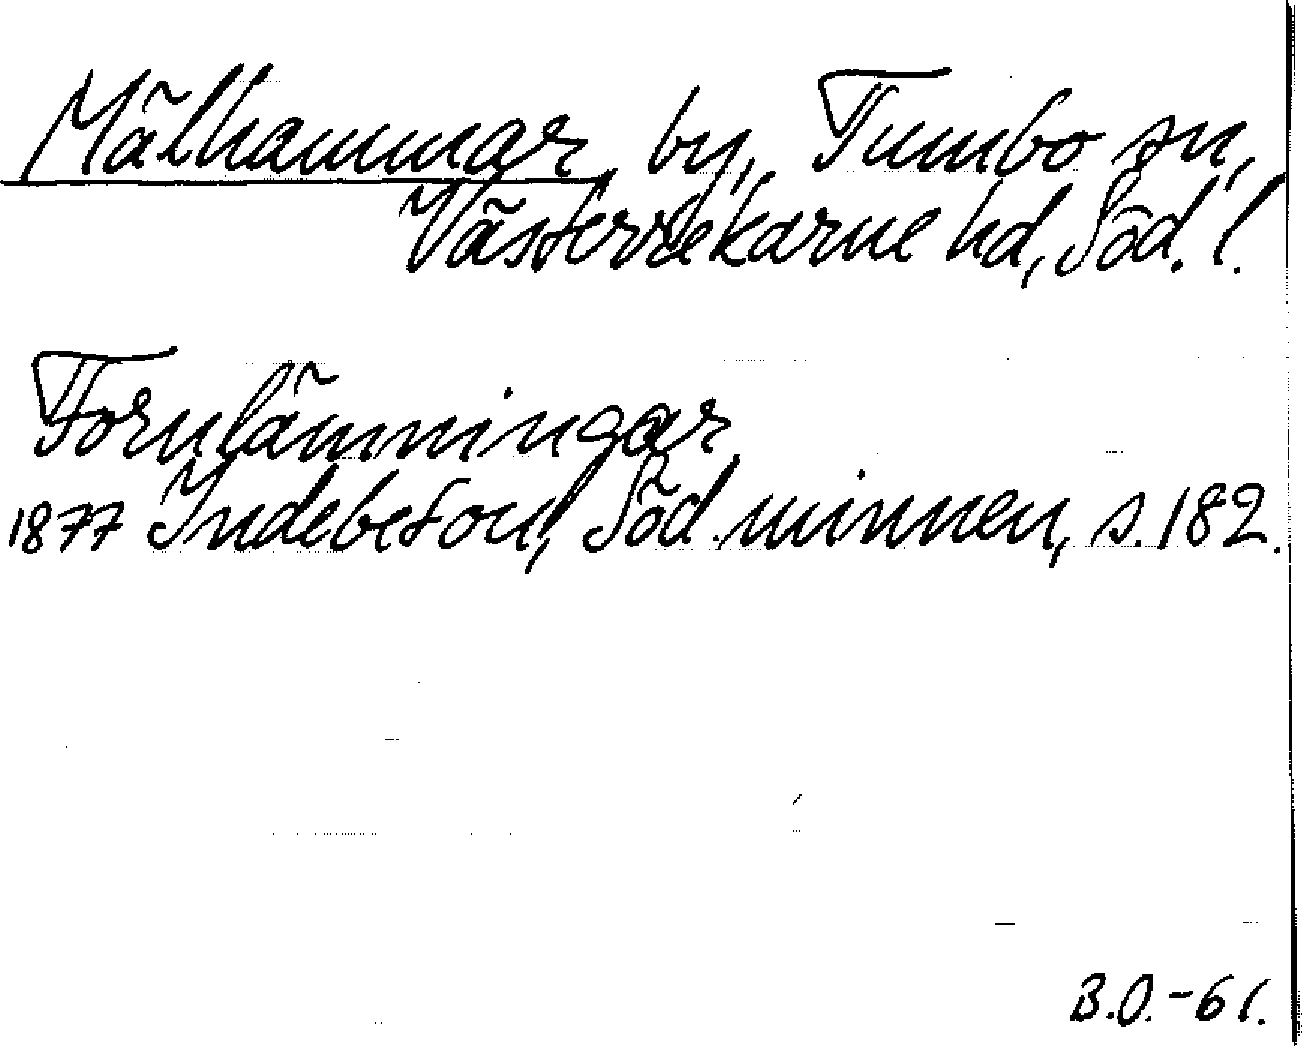 Mälhammar by, Tumbo sn,
Västerrekarne hd, Söd. l.
Fornlämningar
1877 Indebetou, Söd. minnen, s. 182.
B.O.-61.